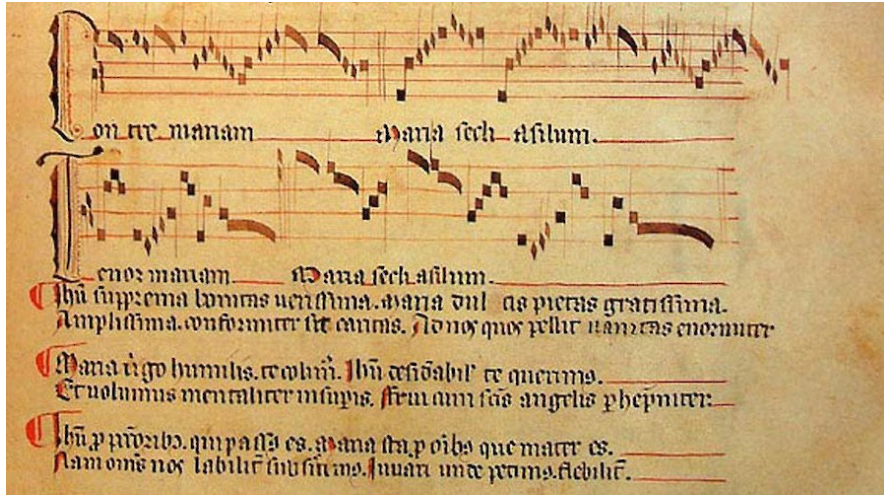 Contre mariam Maria secli asilum.
Tenor mariam Maria secli asilum.
Jhu suprema bonitas uerissima. Maria dul cis pietas gratissima.
Amplissima. conformiter sit caritas. Ad nos quos pellit uanitas enormiter
Maria v̉go humilis. te colim᷒. Jhu desidabil᷒ te querimus.
Et uolumus mentaliter in supis. Frui cum scis angelis phepniter.
Jhu p pctoribus. qui passus es. Maria sta p oibus que mater es.
Nam oms nos labilit subsistimus. Iuuari unde petimus. flebilit.